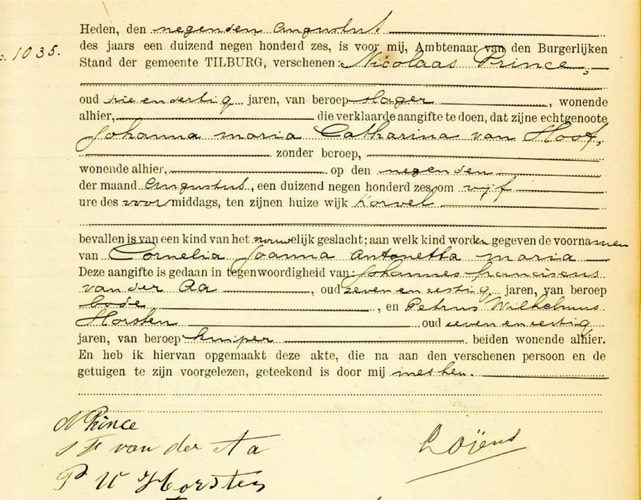 Heden, den negenden Augustus
des jaars een duizend negen honderd zes, is voor mij, Ambtenaar van den Burgerlijken
o. 1035.
Stand der gemeente TILBURG, verschenen: Nicolaas Prince,
oud drie en dertig jaren, van beroep slager, wonende
alhier, die verklaarde aangifte te doen, dat zijne echtgenoote
Johanna Maria Catharina van Hoof,
zonder beroep,
wonende alhier, op den negenden
der maand Augustus, een duizend negen honderd zes, om vijf
ure des voormiddags, ten zijnen huize wijk Korvel
bevallen is van een kind van het vrouwelijk geslacht; aan welk kind worden gegeven de voornamen
van Cornelia Joanna Antonetta Maria
Deze aangifte is gedaan in tegenwoordigheid van: Johannes Franciscus
van der Aa, oud zeven en zestig jaren, van beroep
bode, en Petrus Wilhelmus
Horsten oud zeven en veertig
jaren, van beroep kuiper beiden wonende alhier.
En heb ik hiervan opgemaakt deze akte, die na aan den verschenen persoon en de
getuigen te zijn voorgelezen, geteekend is door mij met hen.
N Prince
J F van der Aa
P W Horsten